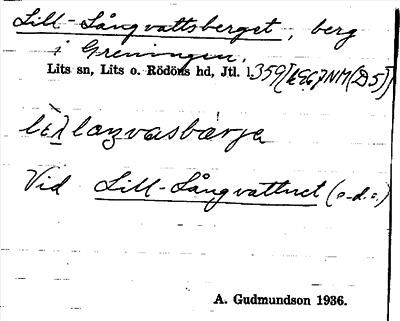 Lill-Långvattsberget, berg
i Greningen,
Lits sn, Lits o. Rödöns hd, Jtl. 1359
Vid Lill-Långvattnet (s.d.o.)
A. Gudmundson 1936.